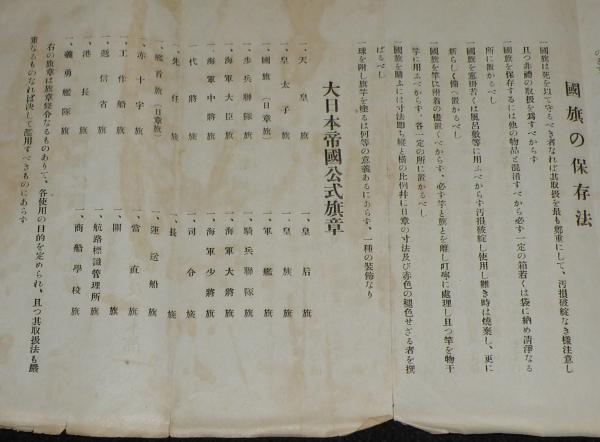 國旗の保存法
一、國旗は死を以て守るべき者なれば其取扱を最も鄭重にして、汚損破綻なき樣注意し
且つ非禮の取扱を爲すべからす
一、國旗を保存するには他の物品と混淆すべから必す一定の箱若くは袋に納め清淨なる
所に置かるべし
一、國旗を窓掛若くは風呂敷等に用ふべからす汚損破綻し使用し難き時は燒棄し、更に
新らしく備へ置かるべし
一、國旗を竿に附着の儘置くべからす、必す竿と旗とを離し叮寧に處理し且つ竿を物干
竿に用ふべからす、各一定の所に置かるべし
一、國旗を購ふには寸法即ち縱と橫の比例并に日章の寸法及び赤色の褪色せざる者を撰
ばるべし
一、球を附し旗竿を塗るは何等の意義あるにあらす、一種の裝飾なり
大日本帝國公式旗章
一、天皇旗
一、皇后旗
一、皇太子旗
一、皇族旗
一、國旗（日章旗）
一、軍艦旗
一、步兵聯隊旗
一、騎兵聯隊旗
一、海軍大臣旗
一、海軍大將旗
一、海軍中將旗
一、海軍少將旗
一、代將旗
一、司令旗
一、先任旗
一、長旗
一、艦首旗（日章旗）
一、運送船旗
一、赤十字旗
一、當直旗
一、工作船旗
一、關旗
一、遞信省旗
一、航路標識管理所旗
一、港長旗
一、商船學校旗
一、義勇艦隊旗
右の旗章は旗章條令なるものありて、各使用の目的を定められ、且つ其取扱法も嚴
重なるものなれば決して濫用すべきものにあらす